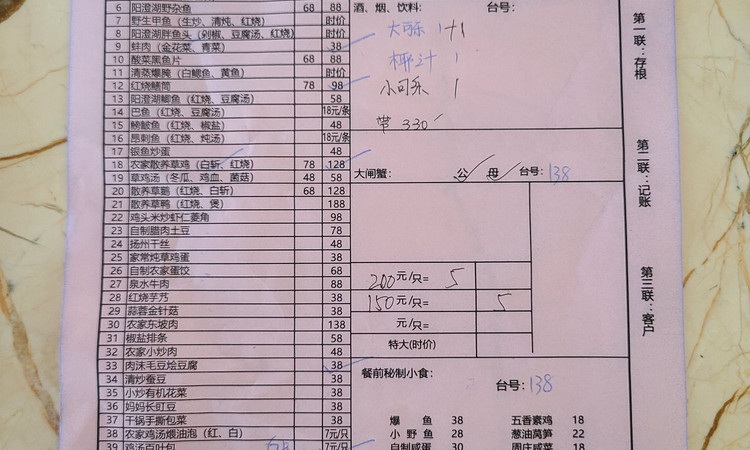 6 阳澄湖野杂鱼 68 88
7 野生甲鱼（生炒、清炖、红烧） 时价
8 阳澄湖胖鱼头（剁椒、豆腐汤、红烧） 时价
9 蚌肉（金花菜、青菜） 38
10 酸菜黑鱼片 68 88
11 清蒸爆腌（白鲫鱼、黄鱼） 时价
12 红烧鳝筒 78 98
13 阳澄湖鲫鱼（红烧、豆腐汤） 58
14 巴鱼（红烧、豆腐汤） 18元/条
15 鳑鲏鱼（红烧、椒盐） 48
16 昂刺鱼（红烧、炖汤） 18元/条
17 银鱼炒蛋 48
18 农家散养草鸡（白斩、红烧） 78 128
19 草鸡汤（冬瓜、鸡血、菌菇） 48 58
20 散养草鹅（红烧、白斩） 68 128
21 散养草鸭（红烧、煲） 188
22 鸡头米炒虾仁菱角 98
23 自制腊肉土豆 78
24 扬州干丝 48
25 家常炖草鸡蛋 38
26 自制农家蛋饺 68
27 泉水牛肉 88
28 红烧芋艿 38
29 蒜蓉金针菇 38
30 农家东坡肉 138
31 椒盐排条 58
32 农家小炒肉 48
33 肉沫毛豆烩豆腐 38
34 清炒蚕豆 38
35 小炒有机花菜 38
36 妈妈长豇豆 38
37 干锅手撕包菜 38
38 农家鸡汤煨油泡（红、白） 7元/只
39 鸡汤百叶包 7元/只
酒、烟、饮料： 台号：
大可乐 1+1
椰汁 1
小可乐 1
带 330
大闸蟹： 公 母 台号：138
200元/只= 5
150元/只= 5
元/只=
特大(时价)
餐前秘制小食：
台号：138
爆鱼 38 五香素鸡 18
小野鱼 28 葱油莴笋 22
自制咸蛋 30 周庄咸菜 18
第一联：存根
第二联：记账
第三联：客户